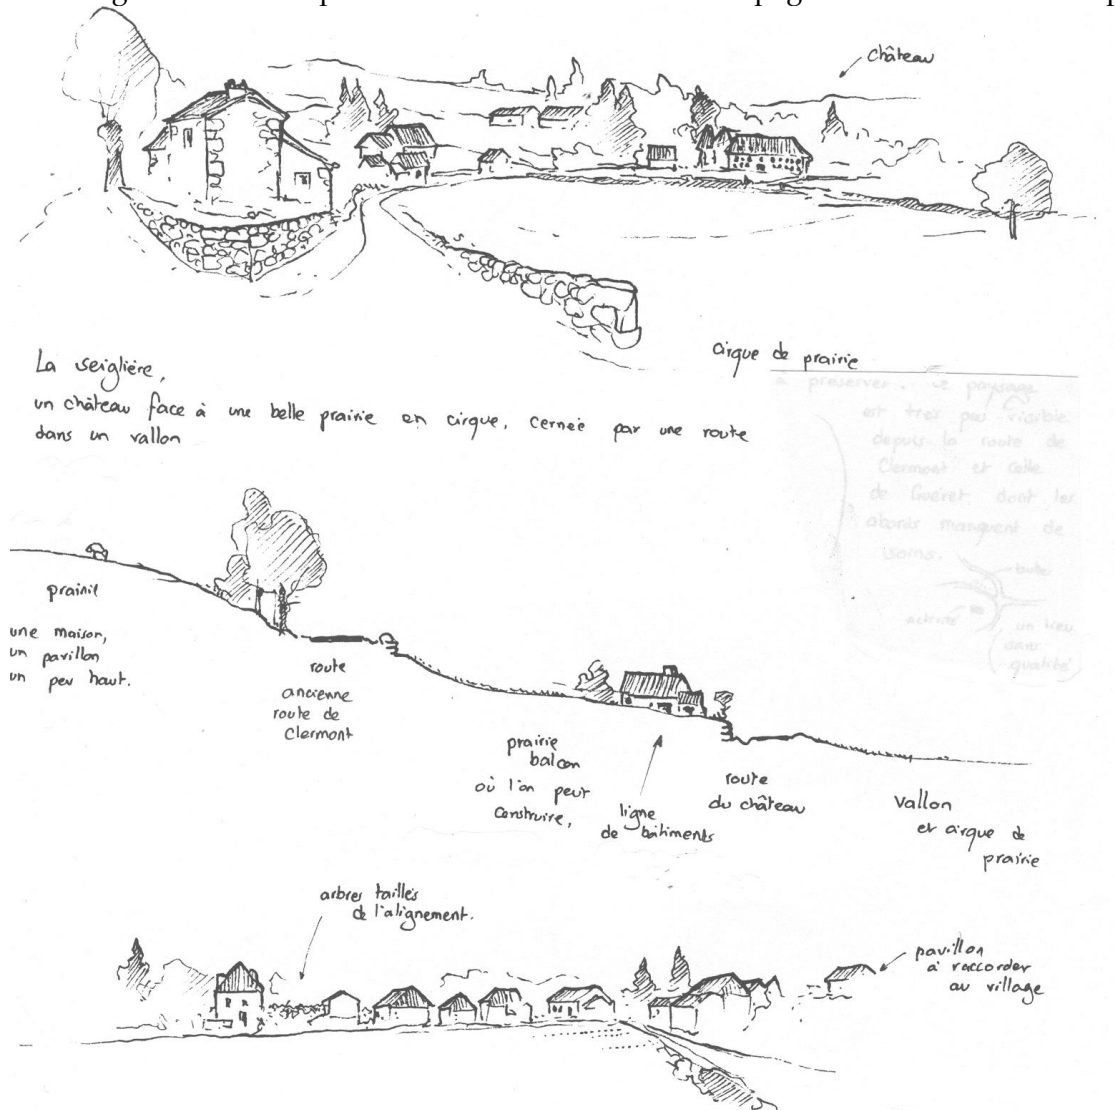 château
cirque de prairie
La Seiglière,
un château face à une belle prairie en cirque, cernée par une route
dans un vallon
à préserver. Le paysage
est très peu visible
depuis la route de
Clermont et celle
de Guéret dont les
abords manquent de
soins.
butte
activité
un lieu
dans
qualité
prairie
une maison,
un pavillon
un peu haut.
route
ancienne
route de
Clermont
prairie
balcon
où l'on peut
construire,
ligne
de bâtiments
route
du château
vallon
et cirque de
prairie
arbres taillés
de l'alignement.
pavillon
à raccorder
au village